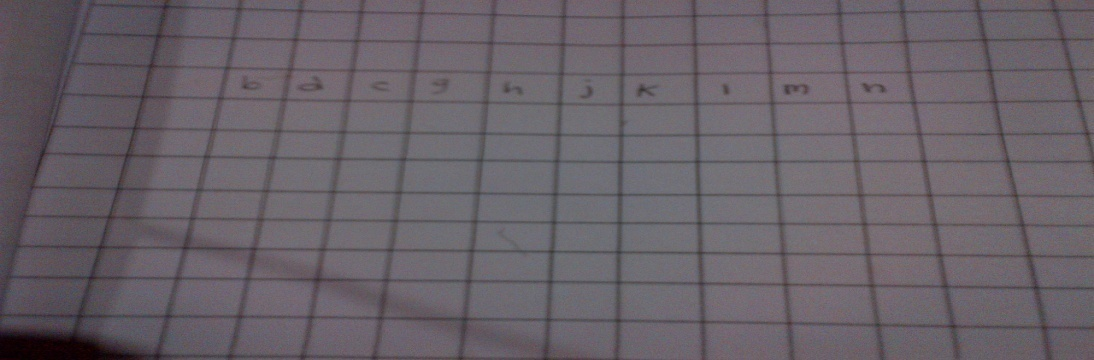 b d c g h j k l m n